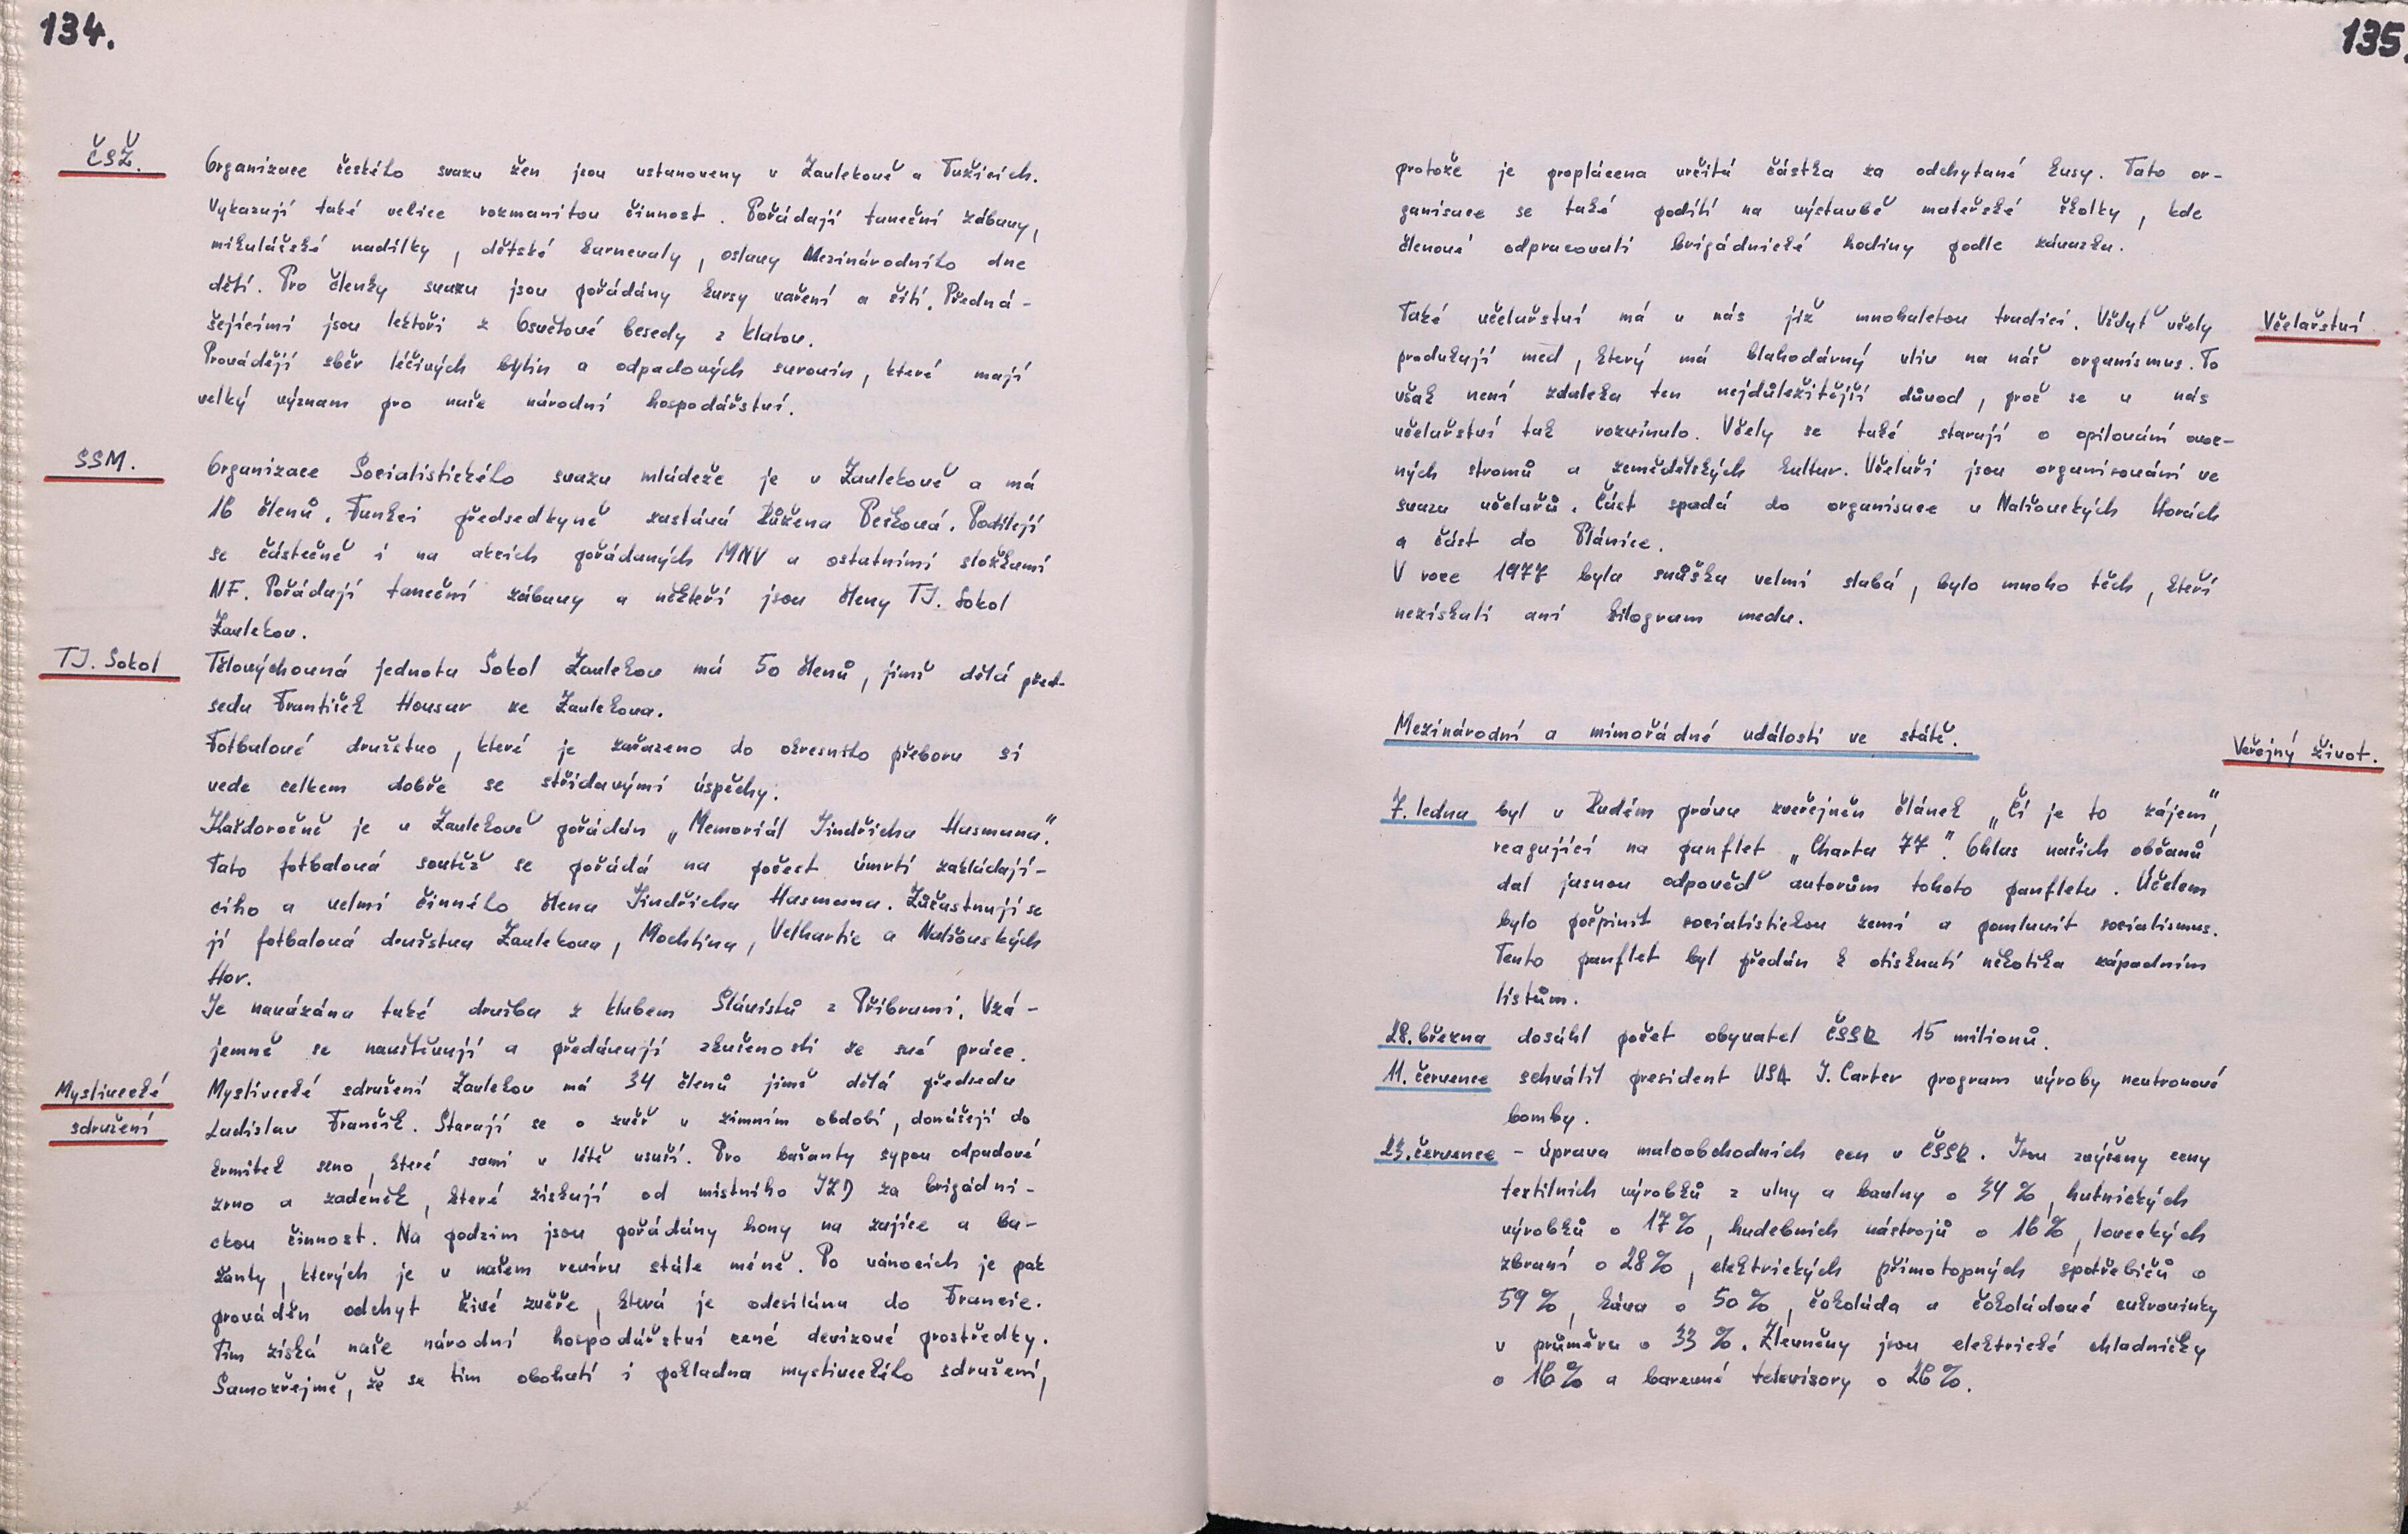 134.
ČSŽ.
Organizace českého svazu žen jsou ustanoveny v Zavlekově a Tužicích.
Vykazují také velice rozmanitou činnost. Pořádají taneční zábavy,
mikulášské nadílky, dětské karnevaly, oslavy Mezinárodního dne
dětí. Pro členky svazu jsou pořádány kursy vaření a šití. Předná-
šejícími jsou lektoři z Osvětové besedy z Klatov.
Provádějí sběr léčivých bylin a odpadových surovin, které mají
velký význam pro naše národní hospodářství.
SSM.
Organizace Socialistického svazu mládeže je v Zavlekově a má
16 členů. Funkci předsedkyně zastává Růžena Pešková. Podílejí
se částečně i na akcích pořádaných MNV a ostatními složkami
NF. Pořádají taneční zábavy a někteří jsou členy TJ. Sokol
Zavlekov.
TJ. Sokol
Tělovýchovná jednota Sokol Zavlekov má 50 členů, jimž dělá před-
sedu František Housar ze Zavlekova.
Fotbalové družstvo, které je zařazeno do okresního přeboru si
vede celkem dobře se střídavými úspěchy.
Každoročně je v Zavlekově pořádán „Memoriál Jindřicha Hasmana".
Tato fotbalová soutěž se pořádá na počest úmrtí zakládají-
cího a velmi činného člena Jindřicha Hasmana. Zůčastnují se
jí fotbalová družstva Zavlekova, Mochtína, Velhartic a Nalžovských
Hor.
Je navázána také družba z klubem Slávistů z Příbrami. Vzá-
jemně se navštěvují a předávají zkušenosti ze své práce.
Myslivecké
sdružení
Myslivecké sdružení Zavlekov má 34 členů jimž dělá předsedu
Ladislav Frančík. Starají se o zvěř v zimním období, donášejí do
krmítek seno, které sami v létě usuší. Pro bažanty sypou odpadové
zrno a zaděněk, které získají od místního JZD za brigádni-
ckou činnost. Na podzim jsou pořádány hony na zajíce a ba-
žanty, kterých je v našem revíru stále méně. Po vánocích je pak
prováděn odchyt živé zvěře, která je odesílána do Francie.
Tím získá naše národní hospodářství cené devizové prostředky.
Samozřejmě, že se tím obohatí i pokladna mysliveckého sdružení,
135.
protože je proplácena určitá částka za odchytané kusy. Tato or-
ganisace se také podílí na výstavbě mateřské školky, kde
členové odpracovali brigádnické hodiny podle závazku.
Včelařství
Také včelařství má u nás již mnohaletou tradici. Vždyť včely
produkují med, který má blahodárný vliv na náš organismus. To
však není zdaleka ten nejdůležitější důvod, proč se u nás
včelařství tak rozvinulo. Včely se také starají o opilování ovoc-
ných stromů a zemědělských kultur. Včelaři jsou organisováni ve
svazu včelařů. Část spadá do organisace v Nalžovských Horách
a část do Plánice.
V roce 1977 byla snůška velmi slabá, bylo mnoho těch, kteří
nezískali ani kilogram medu.
Mezinárodní a mimořádné události ve státě.
Veřejný život.
7. ledna byl v Rudém právu zveřejněn článek „Čí je to zájem",
reagující na panflet „Charta 77". Ohlas našich občanů
dal jasnou odpověď autorům tohoto panfletu. Účelem
bylo pošpinit socialistickou zemi a pomluvit socialismus.
Tento panflet byl předán k otisknutí několika západním
listům.
28. března dosáhl počet obyvatel ČSSR 15 milionů.
11. července schválil president USA J. Carter program výroby neutronové
bomby.
23. července - úprava maloobchodních cen v ČSSR. Jsou zvýšeny ceny
textilních výrobků z vlny a bavlny o 34 %, hutnických
výrobků o 17 %, hudebních nástrojů o 16 %, loveckých
zbraní o 28 %, elektrických přímotopných spotřebičů o
59 %, káva o 50 %, čokoláda a čokoládové cukrovinky
v průměru o 33 %. Zlevněny jsou elektrické chladničky
o 16 % a barevné televisory o 26 %.